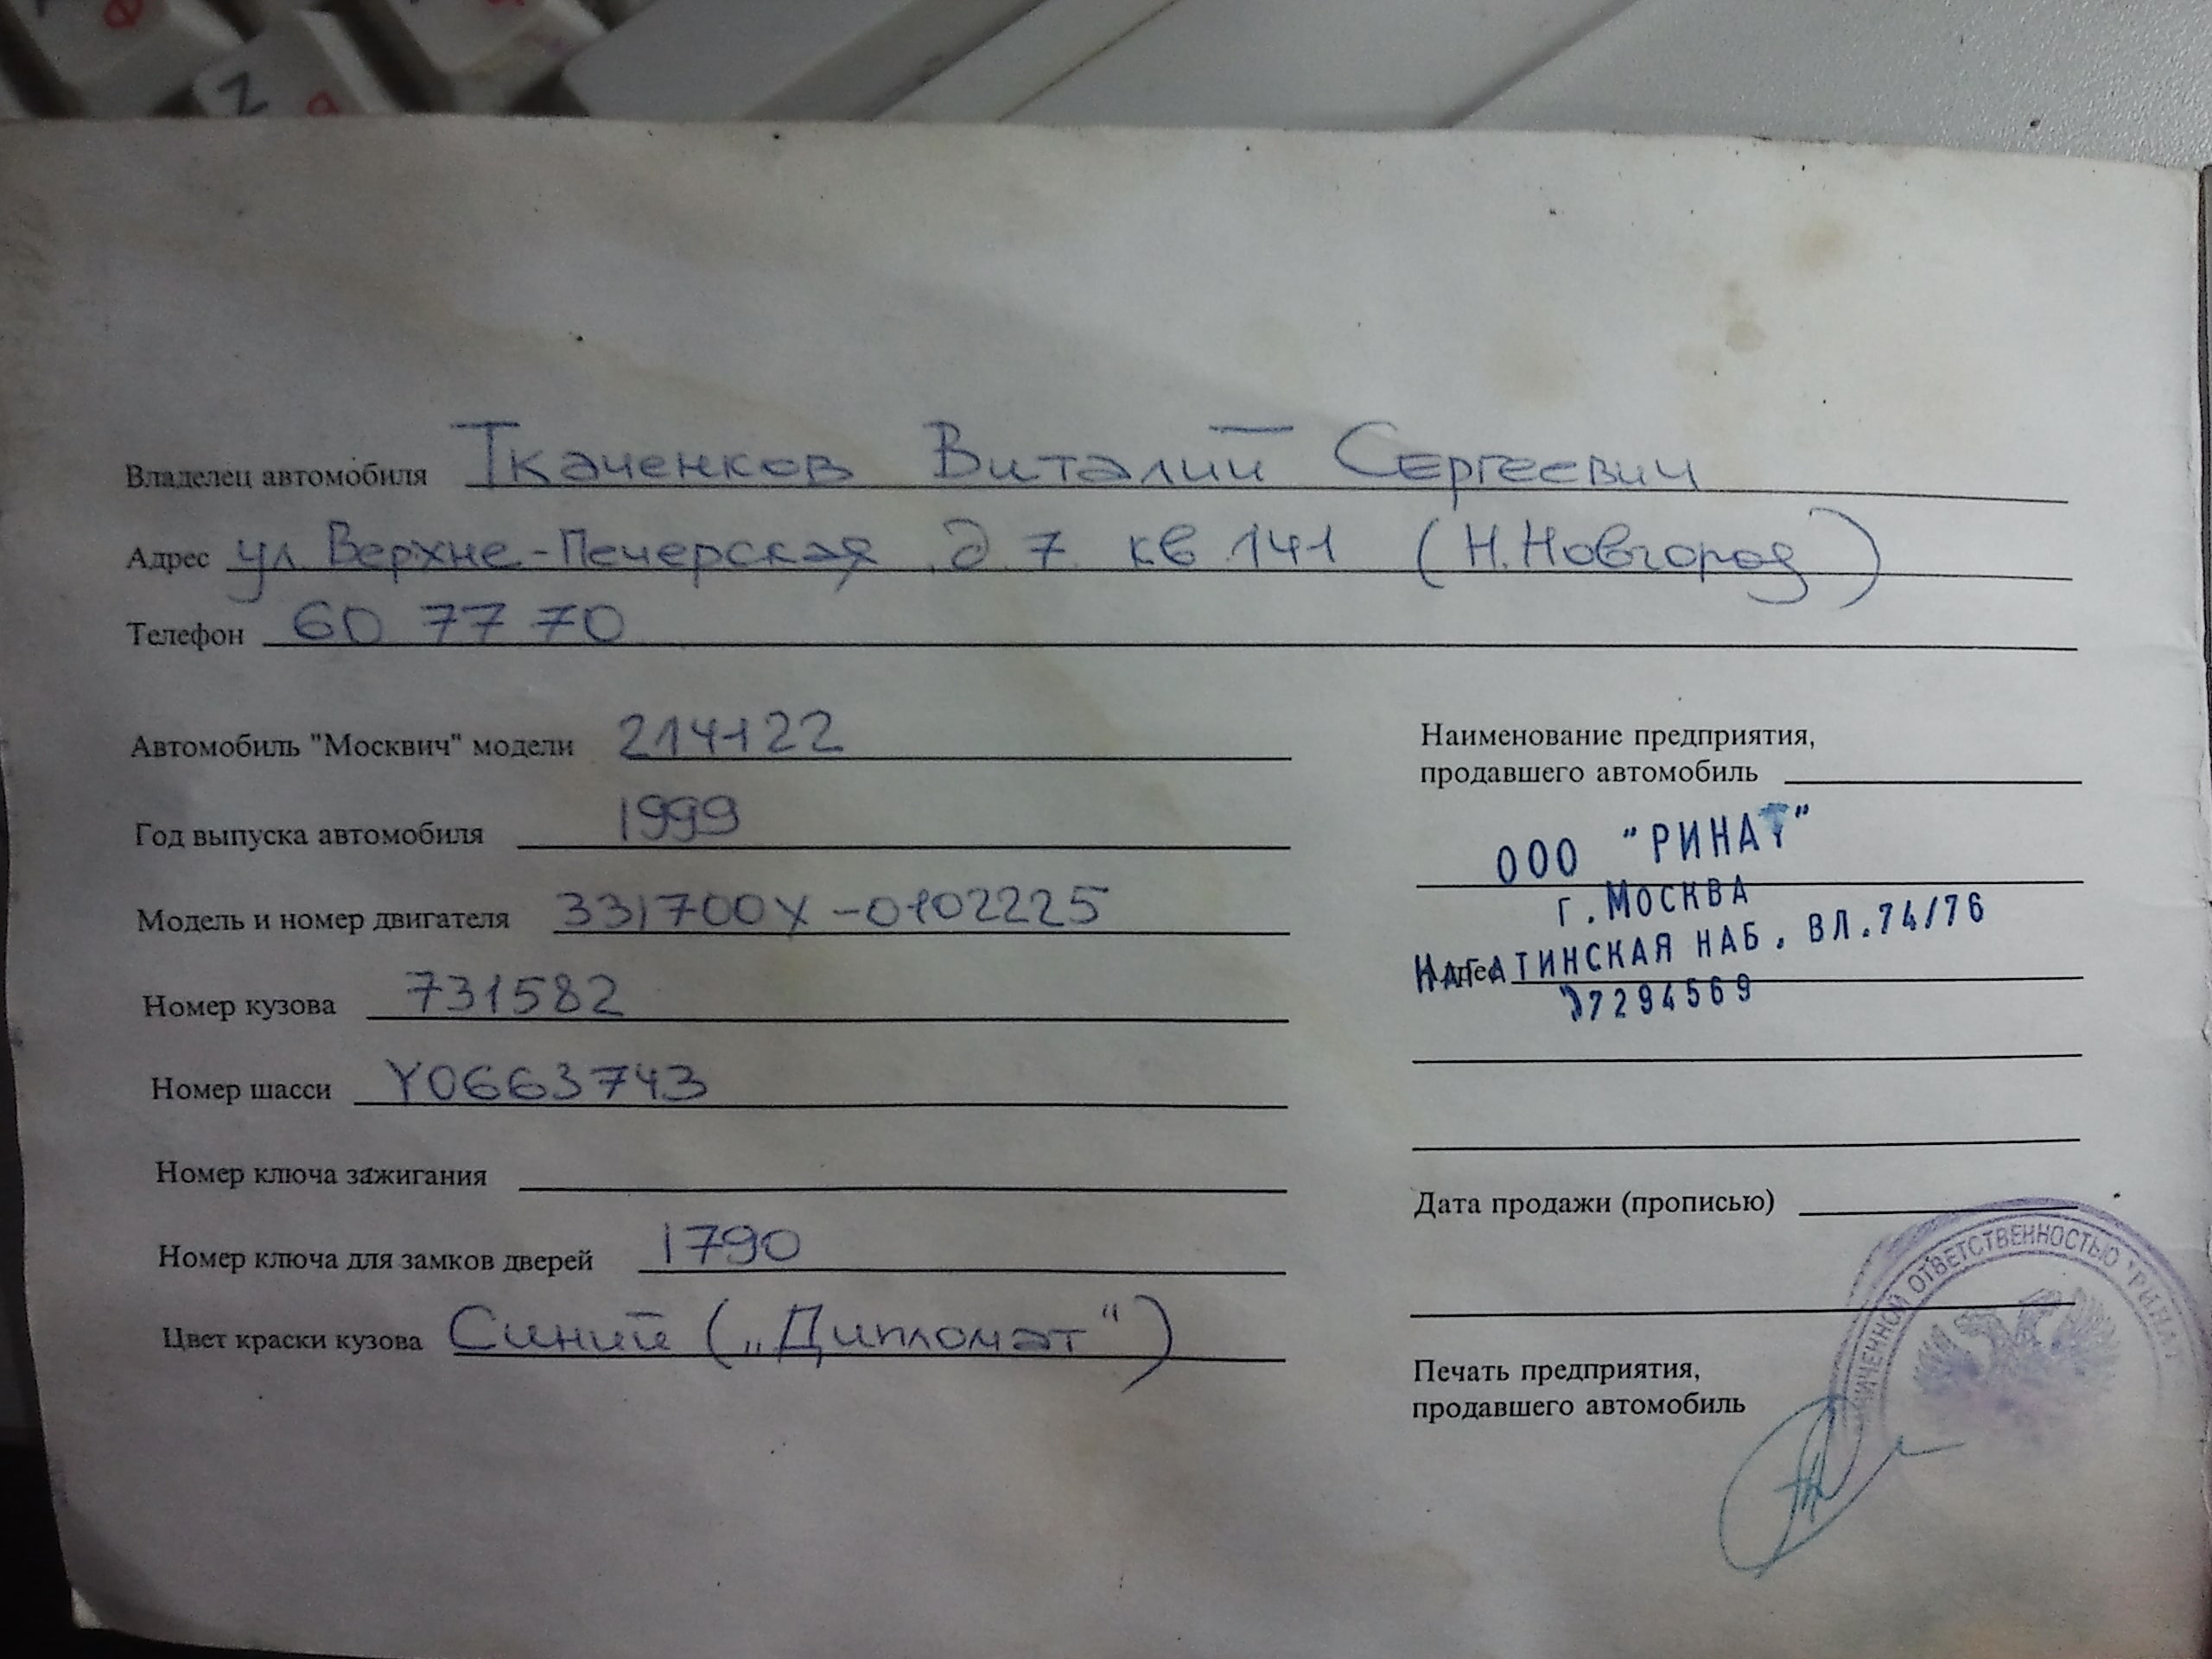 Владелец автомобиля Ткаченков Виталий Сергеевич
Адрес ул. Верхне-Печерская д. 7 кв 141 (Н.Новгород)
Телефон 60 77 70
Автомобиль "Москвич" модели 214122
Год выпуска автомобиля 1999
Модель и номер двигателя 331700X-0102225
Номер кузова 731582
Номер шасси Y0663743
Номер ключа зажигания
Номер ключа для замков дверей 1790
Цвет краски кузова Синий („Дипломат“)
Наименование предприятия,
продавшего автомобиль
ООО "РИНАТ"
Г.МОСКВА
Адрес
НАГАТИНСКАЯ НАБ, ВЛ.74/76
7294569
Дата продажи (прописью)
Печать предприятия,
продавшего автомобиль
ОТВЕТСТВЕННОСТЬЮ "РИНАТ"
Z
Я